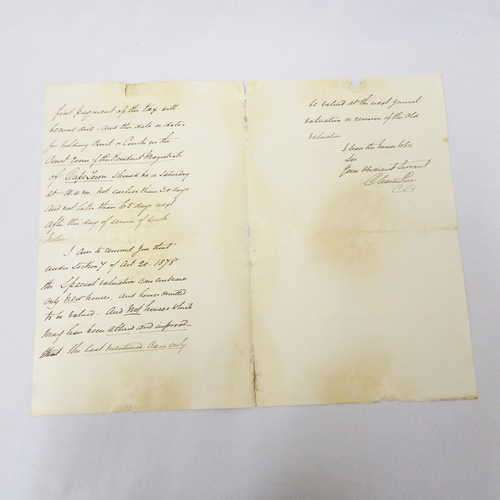 first payment of the tax will
become due - and the date or dates
for holding Court or Courts in the
Court room of the Resident Magistrate
of Cape Town should be a Saturday
at 10 a.m. not earlier than 30 days
and not later than 65 days
after this day of service of such
notice
I am to remind you that
under section 7 of Act 20. 1878
the Special valuation can embrace
only New houses, and houses omitted
to be valued. And Not houses which
may have been altered and improved.
the last mentioned can only
be valued at the next general
valuation or revision of the Old
Valuation
I have the honor to be
Sir
Your obedient Servant